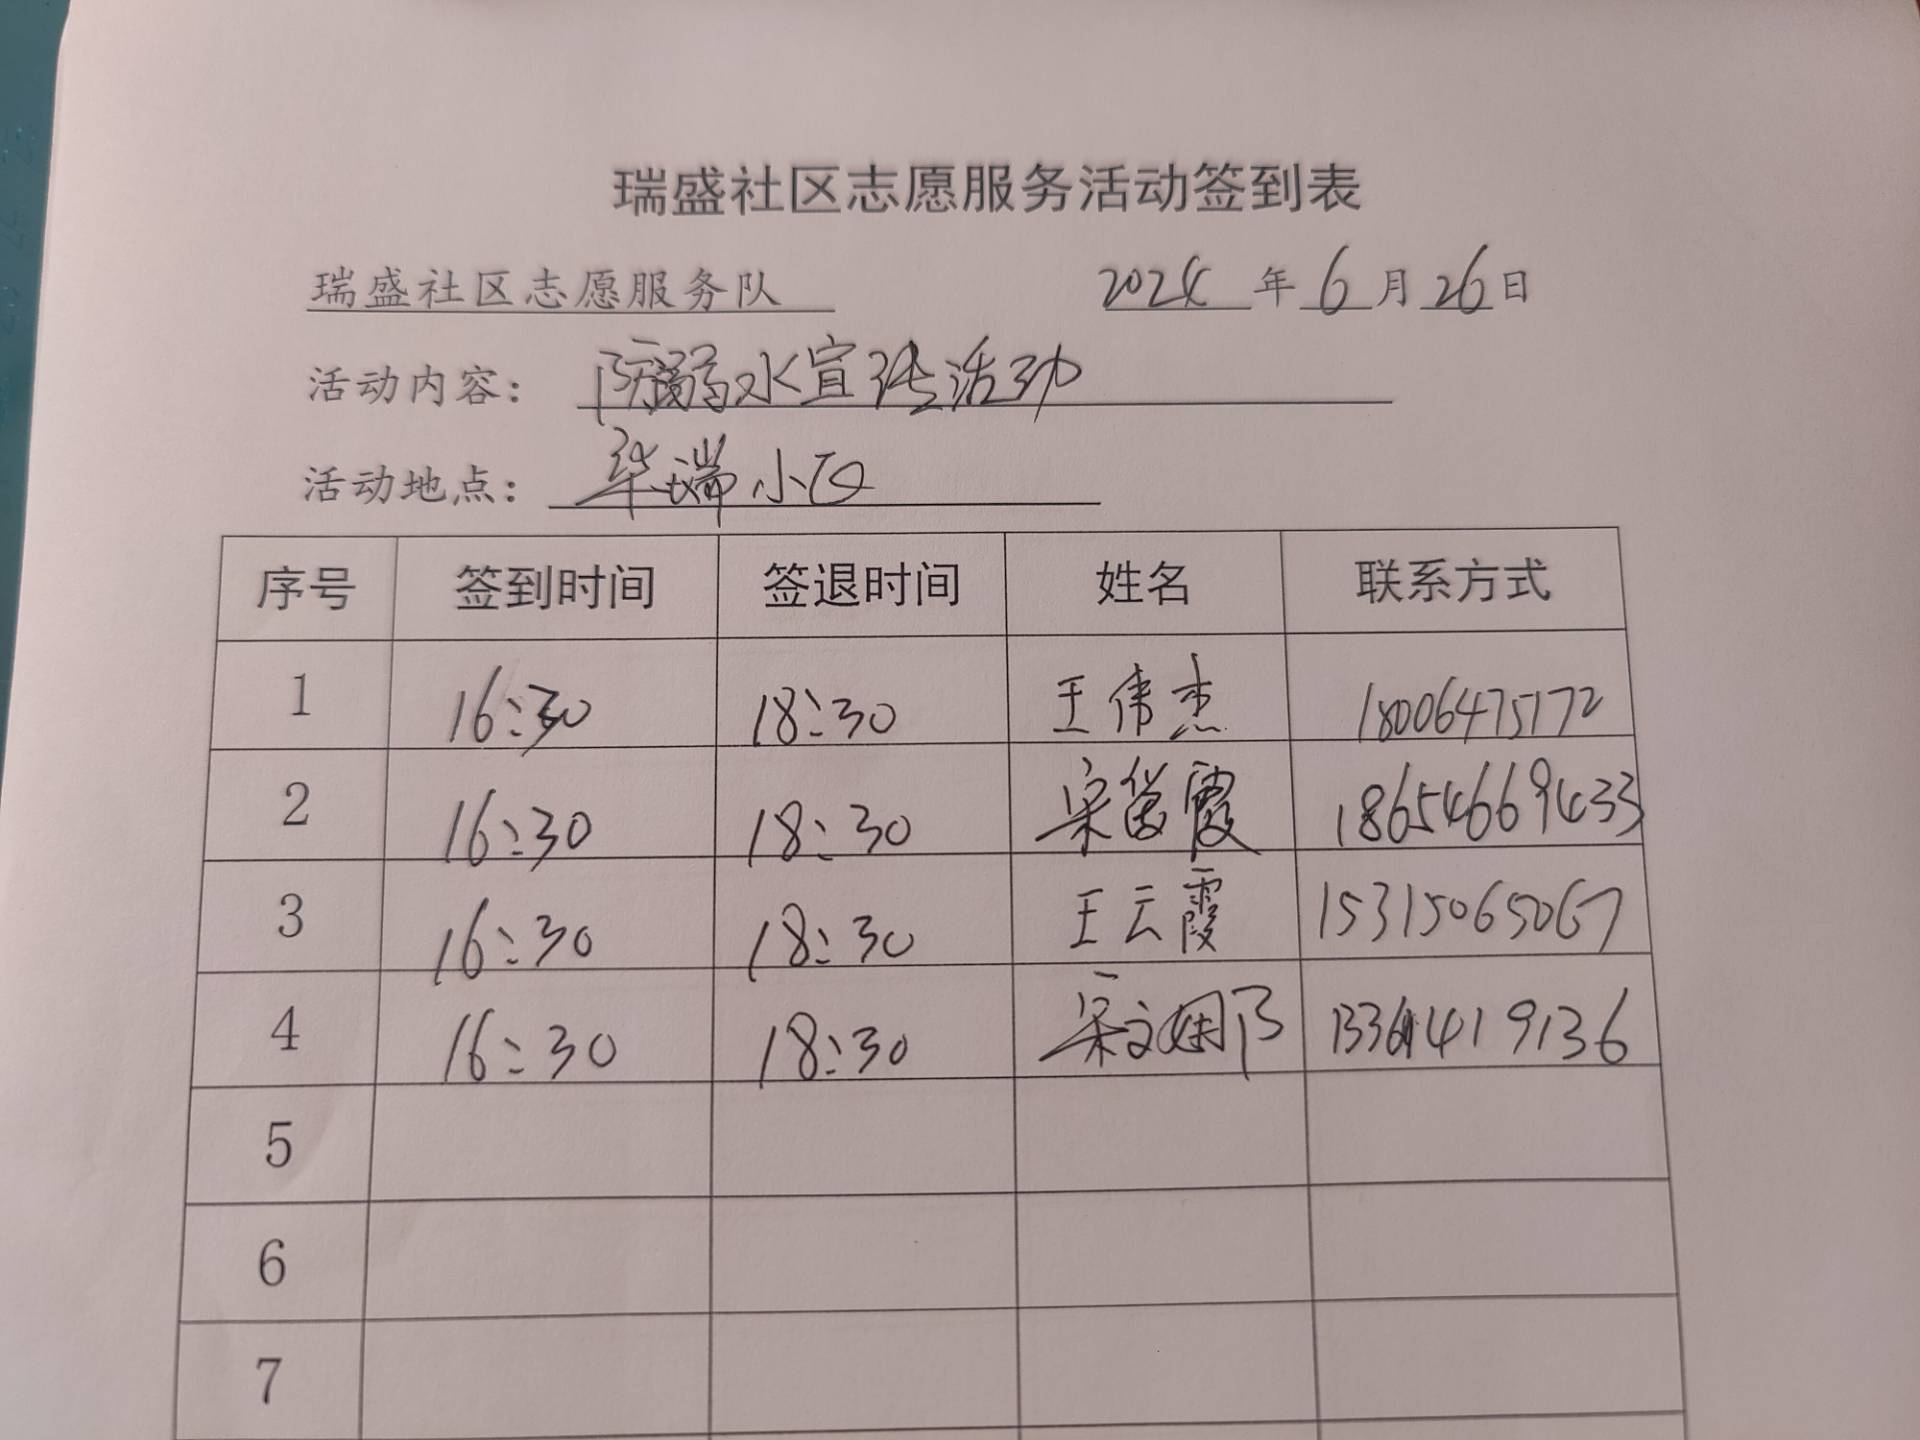 瑞盛社区志愿服务活动签到表
瑞盛社区志愿服务队 2024年6月26日
活动内容: 防溺水宣传活动
活动地点: 华瑞小区
序号 签到时间 签退时间 姓名 联系方式
1 16:30 18:30 王伟杰 18006475172
2 16:30 18:30 宋 霞 18654669433
3 16:30 18:30 王云霞 15315065067
4 16:30 18:30 宋文娟
5
6
7